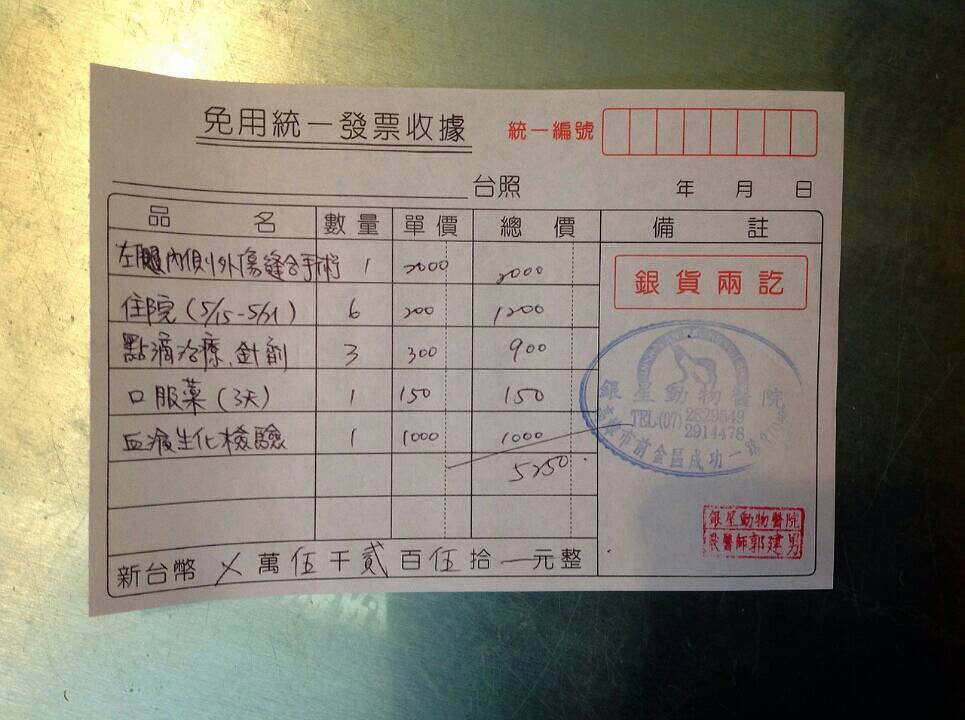 免用統一發票收據
統一編號
台照 年 月 日
品名 數量 單價 總價 備註
左腿內側外傷縫合手術 1 2000 2000
銀貨兩訖
住院(5/15-5/21) 6 200 1200
點滴治療、針劑 3 300 900
口服藥(3天) 1 150 150
血液生化檢驗 1 1000 1000
5250
銀星動物醫院
TEL(07)2829549
2914478
市前金區成功一路
銀星動物醫院
獸醫師郭建男
新台幣 ㄨ 萬 伍 千 貳 百 伍 拾 — 元整